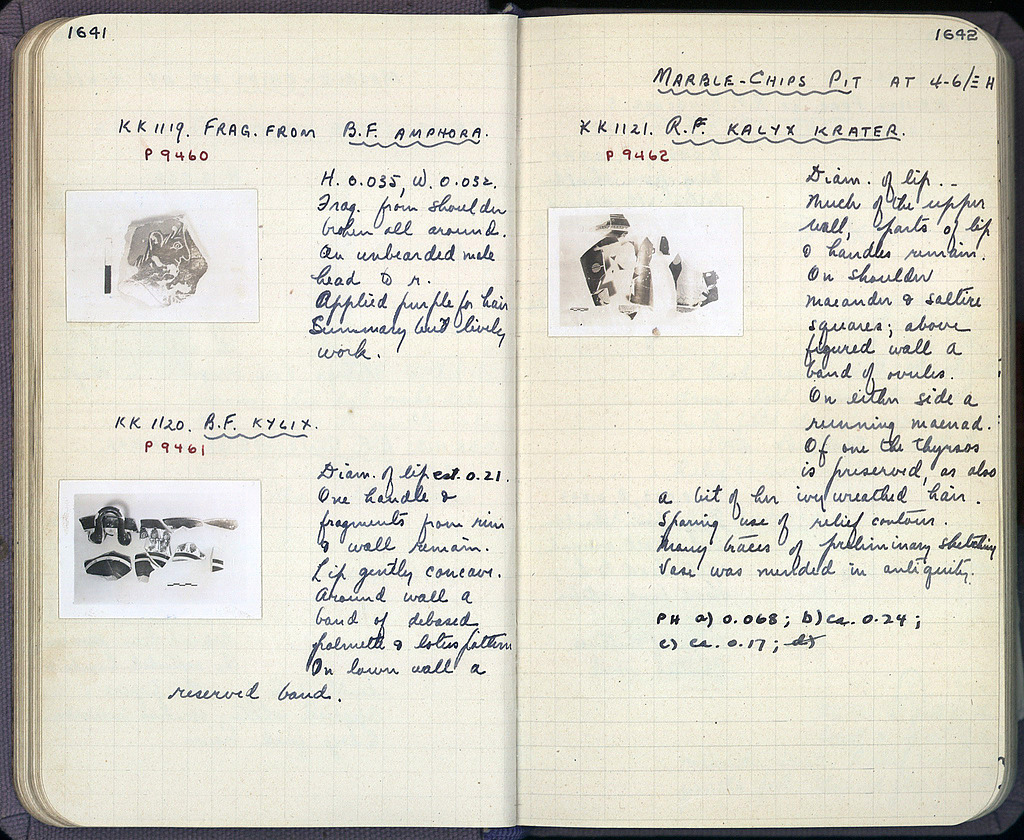 1641
KK 1119. FRAG. FROM B.F. AMPHORA.
P 9460
H. 0.035, W. 0.032.
Frag. from shoulder
broken all around.
An unbearded male
head to r.
Applied purple for hair
Summary but lively
work.
KK 1120. B.F. KYLIX.
P 9461
Diam. of lip est. 0.21.
One handle &
fragments from rim
& wall remain.
Lip gently concave.
Around wall a
band of debased
palmette & lotus pattern
On lower wall a
reserved band.
1642
MARBLE-CHIPS PIT AT 4-6/Ξ H
KK 1121. R.F. KALYX KRATER.
P 9462
Diam. of lip. --
Much of the upper
wall, parts of lip
& handles remain.
On shoulder
maeander & saltire
squares; above
figured wall a
band of ovules.
On either side a
running maenad.
Of one the thyrsos
is preserved, as also
a bit of her ivy wreathed hair.
Sparing use of relief contour.
Many traces of preliminary sketching
Vase was mended in antiquity.
PH a) 0.068; b) ca. 0.24;
c) ca. 0.17; d)